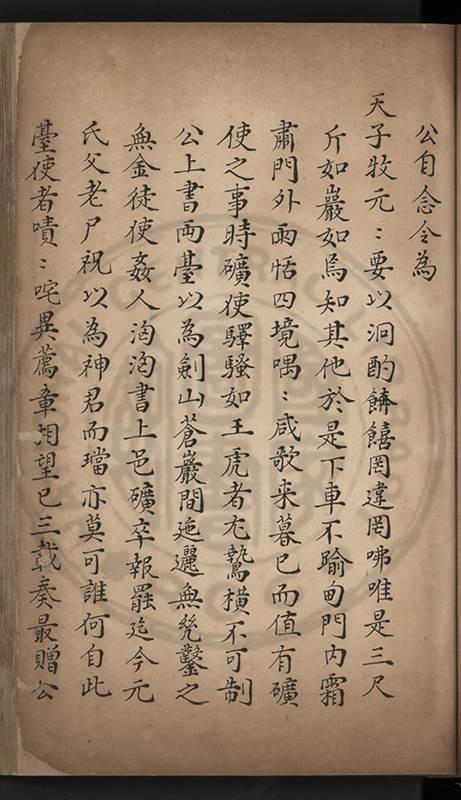 公自念令為
天子牧元〻要以泂酌餴饎罔違罔咈唯是三尺
斤如巖如烏知其他於是下車不踰旬門內霜
肅門外雨恬四境喁〻咸歌来暮已而值有礦
使之事時礦使驛騷如王虎者尤鷙橫不可制
公上書兩臺以為劍山蒼巖間迤邐無幾鑿之
無金徒使姦人洶洶書上邑礦卒報罷迄今元
氏父老尸祝以為神君而璫亦莫可誰何自此
臺使者嘖〻咤異薦章相望已三載奏最贈公